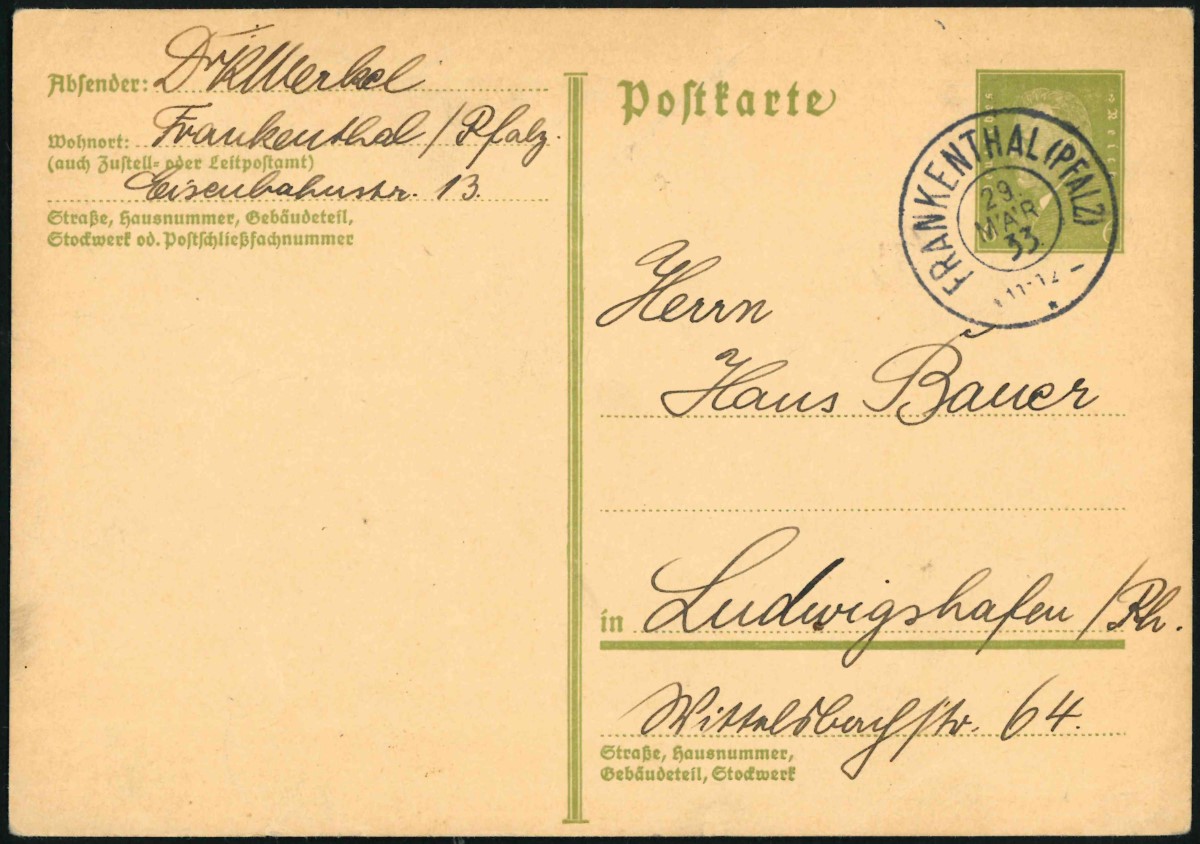 Absender: Dr K Merkel
Wohnort: Frankenthal / Pfalz.
(auch Zustell- oder Leitpostamt)
Eisenbahnstr. 13.
Straße, Hausnummer, Gebäudeteil,
Stockwerk od. Postschließfachnummer
Postkarte
FRANKENTHAL (PFALZ)
29.
MAR
33
11-12
Herrn
Hans Bauer
in Ludwigshafen / Rh.
Wittelsbachstr. 64.
Straße, Hausnummer,
Gebäudeteil, Stockwerk